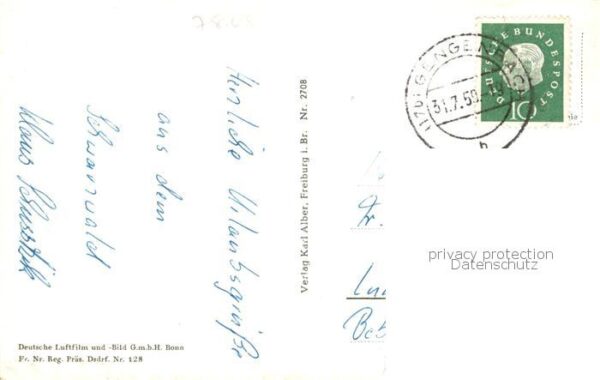 78.68
Herzliche Urlaubsgrüße
aus dem
Schwarzwald
Klaus
Verlag Karl Alber, Freiburg i. Br. Nr. 2708
Deutsche Luftfilm und -Bild G.m.b.H. Bonn
Fr. Nr. Reg. Präs. Drdrf. Nr. 128
DEUTSCHE BUNDESPOST
10
GENGENBACH
31.7.59
b
privacy protection
Datenschutz